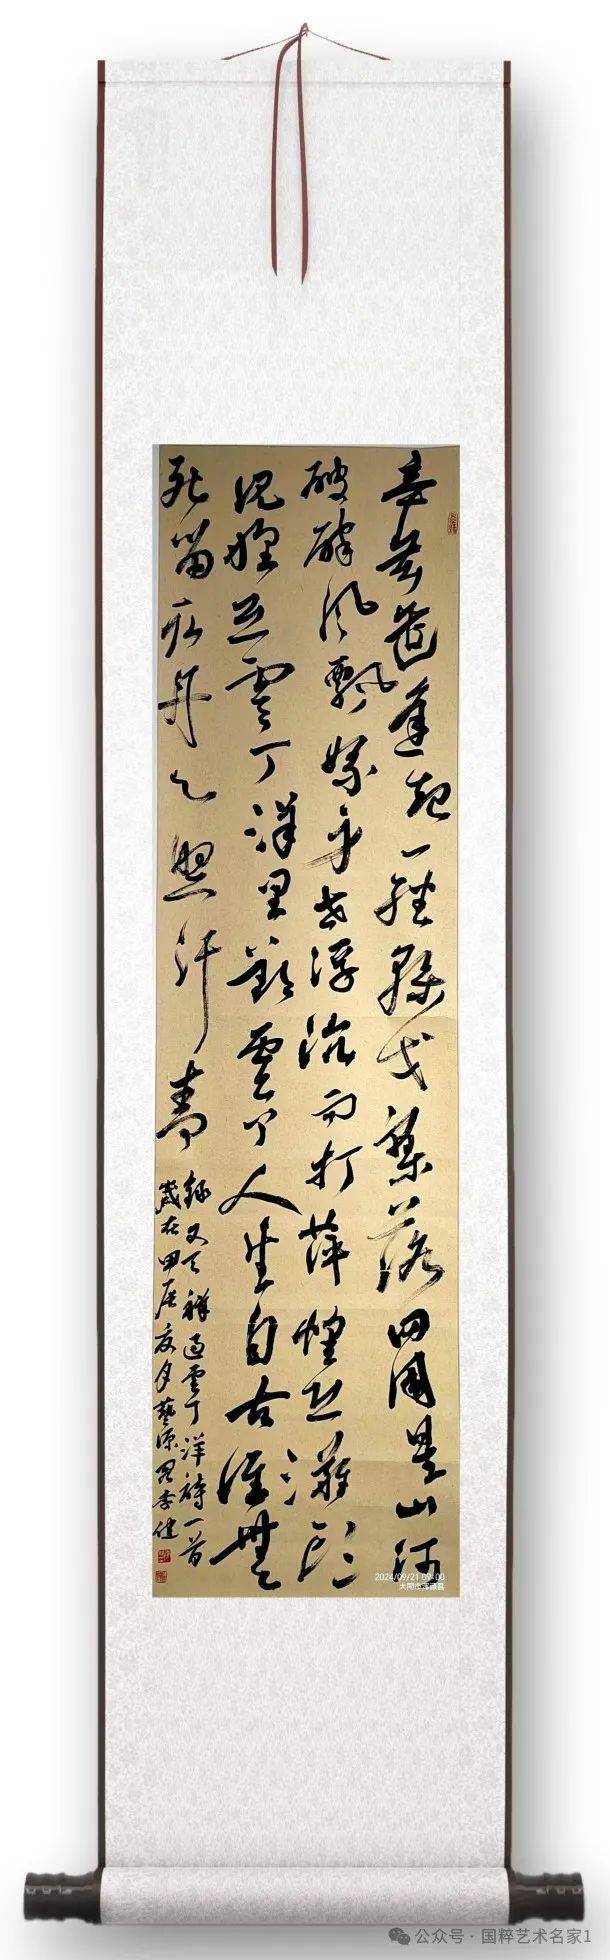 辛苦遭逢起一經幹戈寥落四周星山河
破碎風飄絮身世浮沉雨打萍惶恐灘頭
說惶恐零丁洋里嘆零丁人生自古誰無
死留取丹心照汗青
錄文天祥過零丁洋詩一首
歲在甲辰夏月藝源李健
2024/09/21 09:00
大同市
公众号 · 国粹艺术名家1